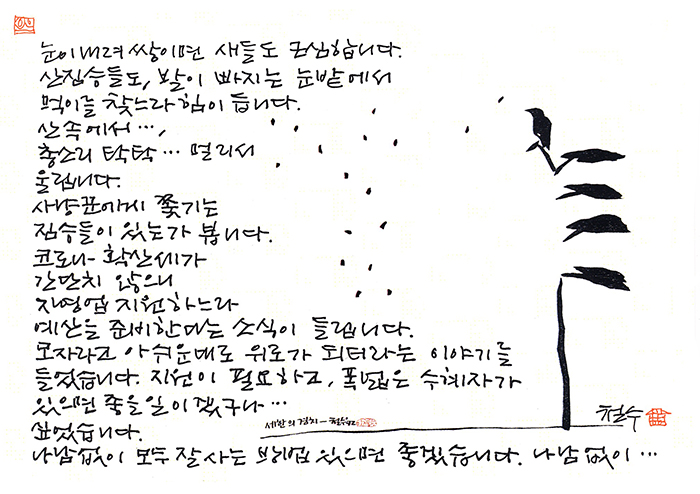 눈이 내려 쌓이면 새들도 근심합니다.
산짐승들도, 발이 빠지는 눈밭에서
먹이를 찾느라 힘이 듭니다.
산속에서…,
총소리 탁탁… 멀리서
울립니다.
사냥꾼에게 쫓기는
짐승들이 있는가 봅니다.
코로나 확산세가
간단치 않으니
자영업 지원하느라
예산을 준비한다는 소식이 들립니다.
모자라고 아쉬운대로 위로가 되더라는 이야기를
들었습니다. 지원이 필요하고, 폭넓은 수혜자가
있으면 좋을 일이겠구나…
싶었습니다.
세한의 경치 -
철수
나남없이 모두 잘 사는 있으면 좋겠습니다. 나남없이…